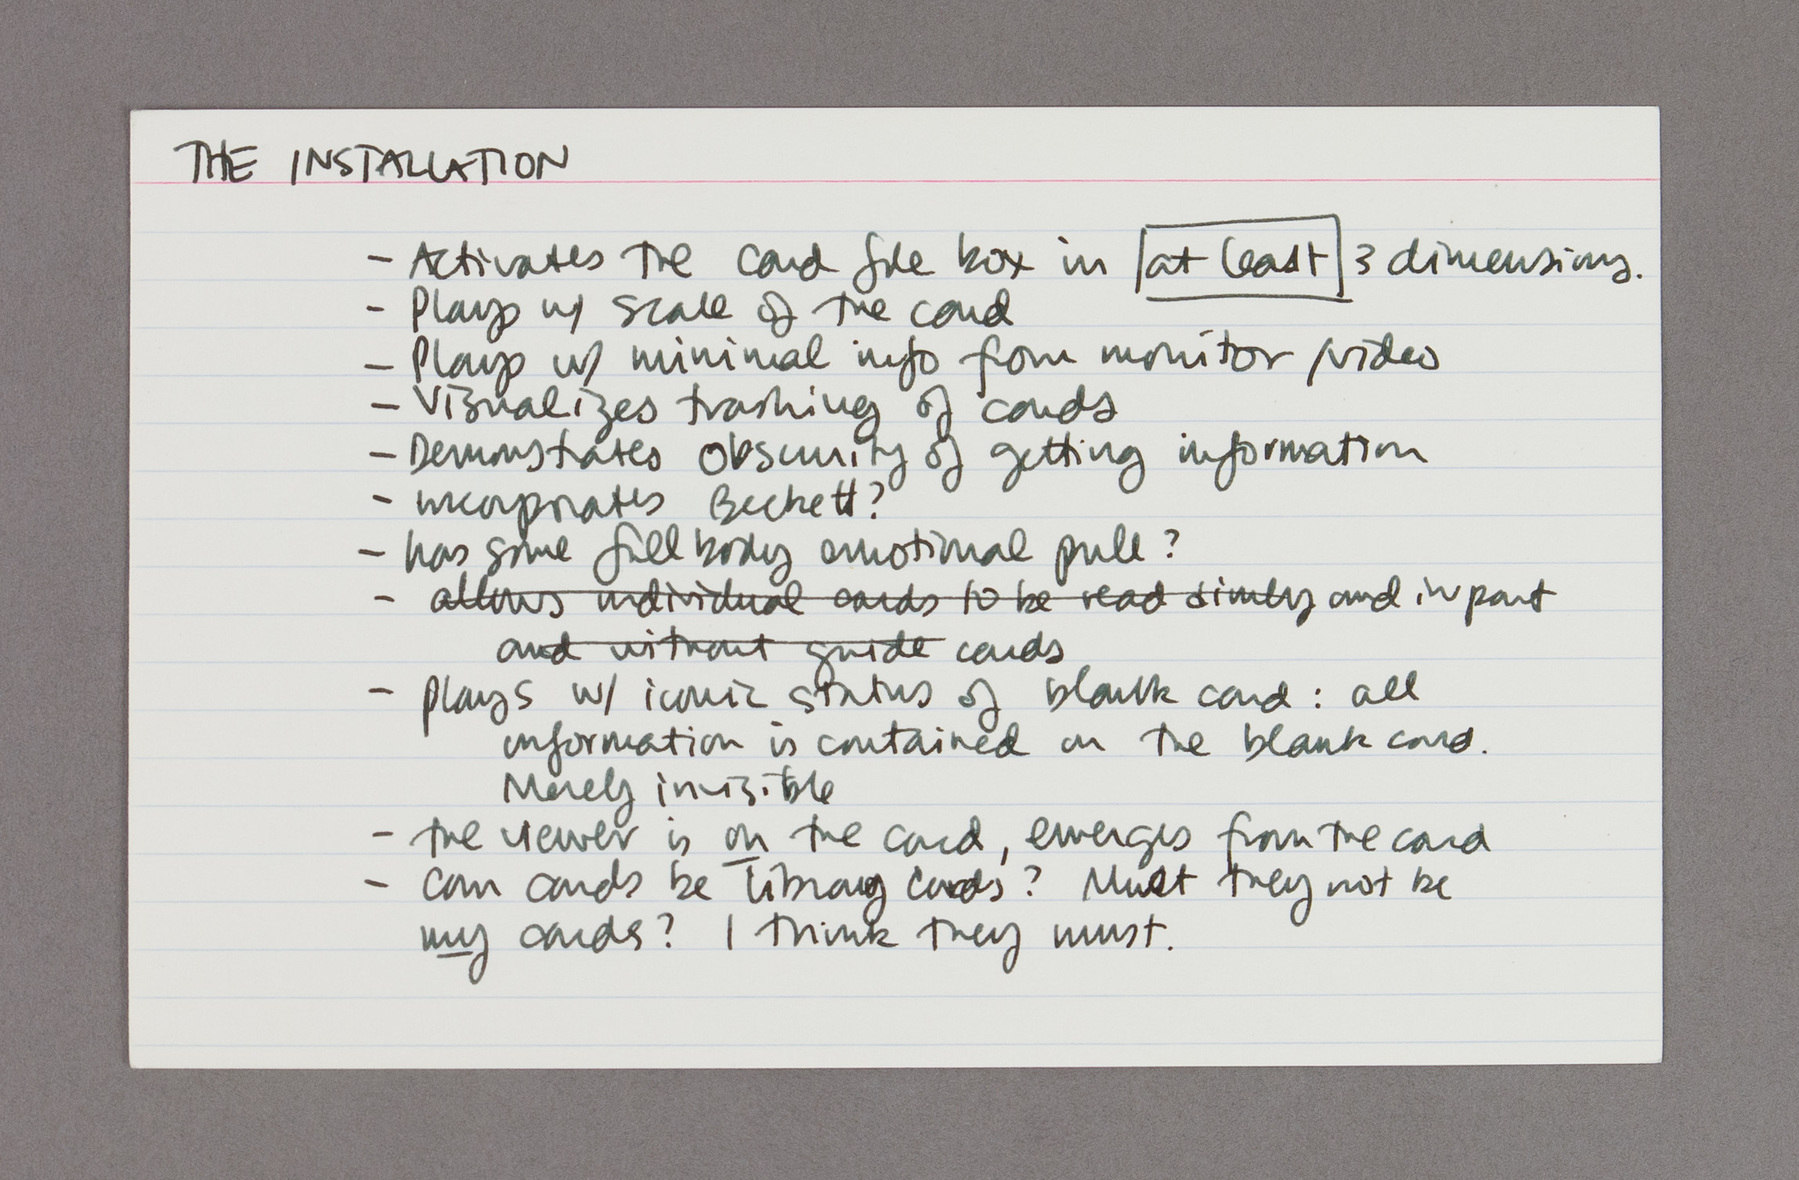 THE INSTALLATION
- Activates the card file box in at least 3 dimensions.
- Plays w/ scale of the card
- Plays w/ minimal info from monitor/video
- Visualizes trashing of cards
- Demonstrates obscurity of getting information
- incorporates Beckett?
- has some full body emotional pull?
- allows individual cards to be read singly and in part
and without guide cards
- plays w/ iconic status of blank card: all
information is contained on the blank card.
Merely invisible
- the viewer is on the card, emerges from the card
- can cards be library cards? Must they not be
my cards? I think they must.